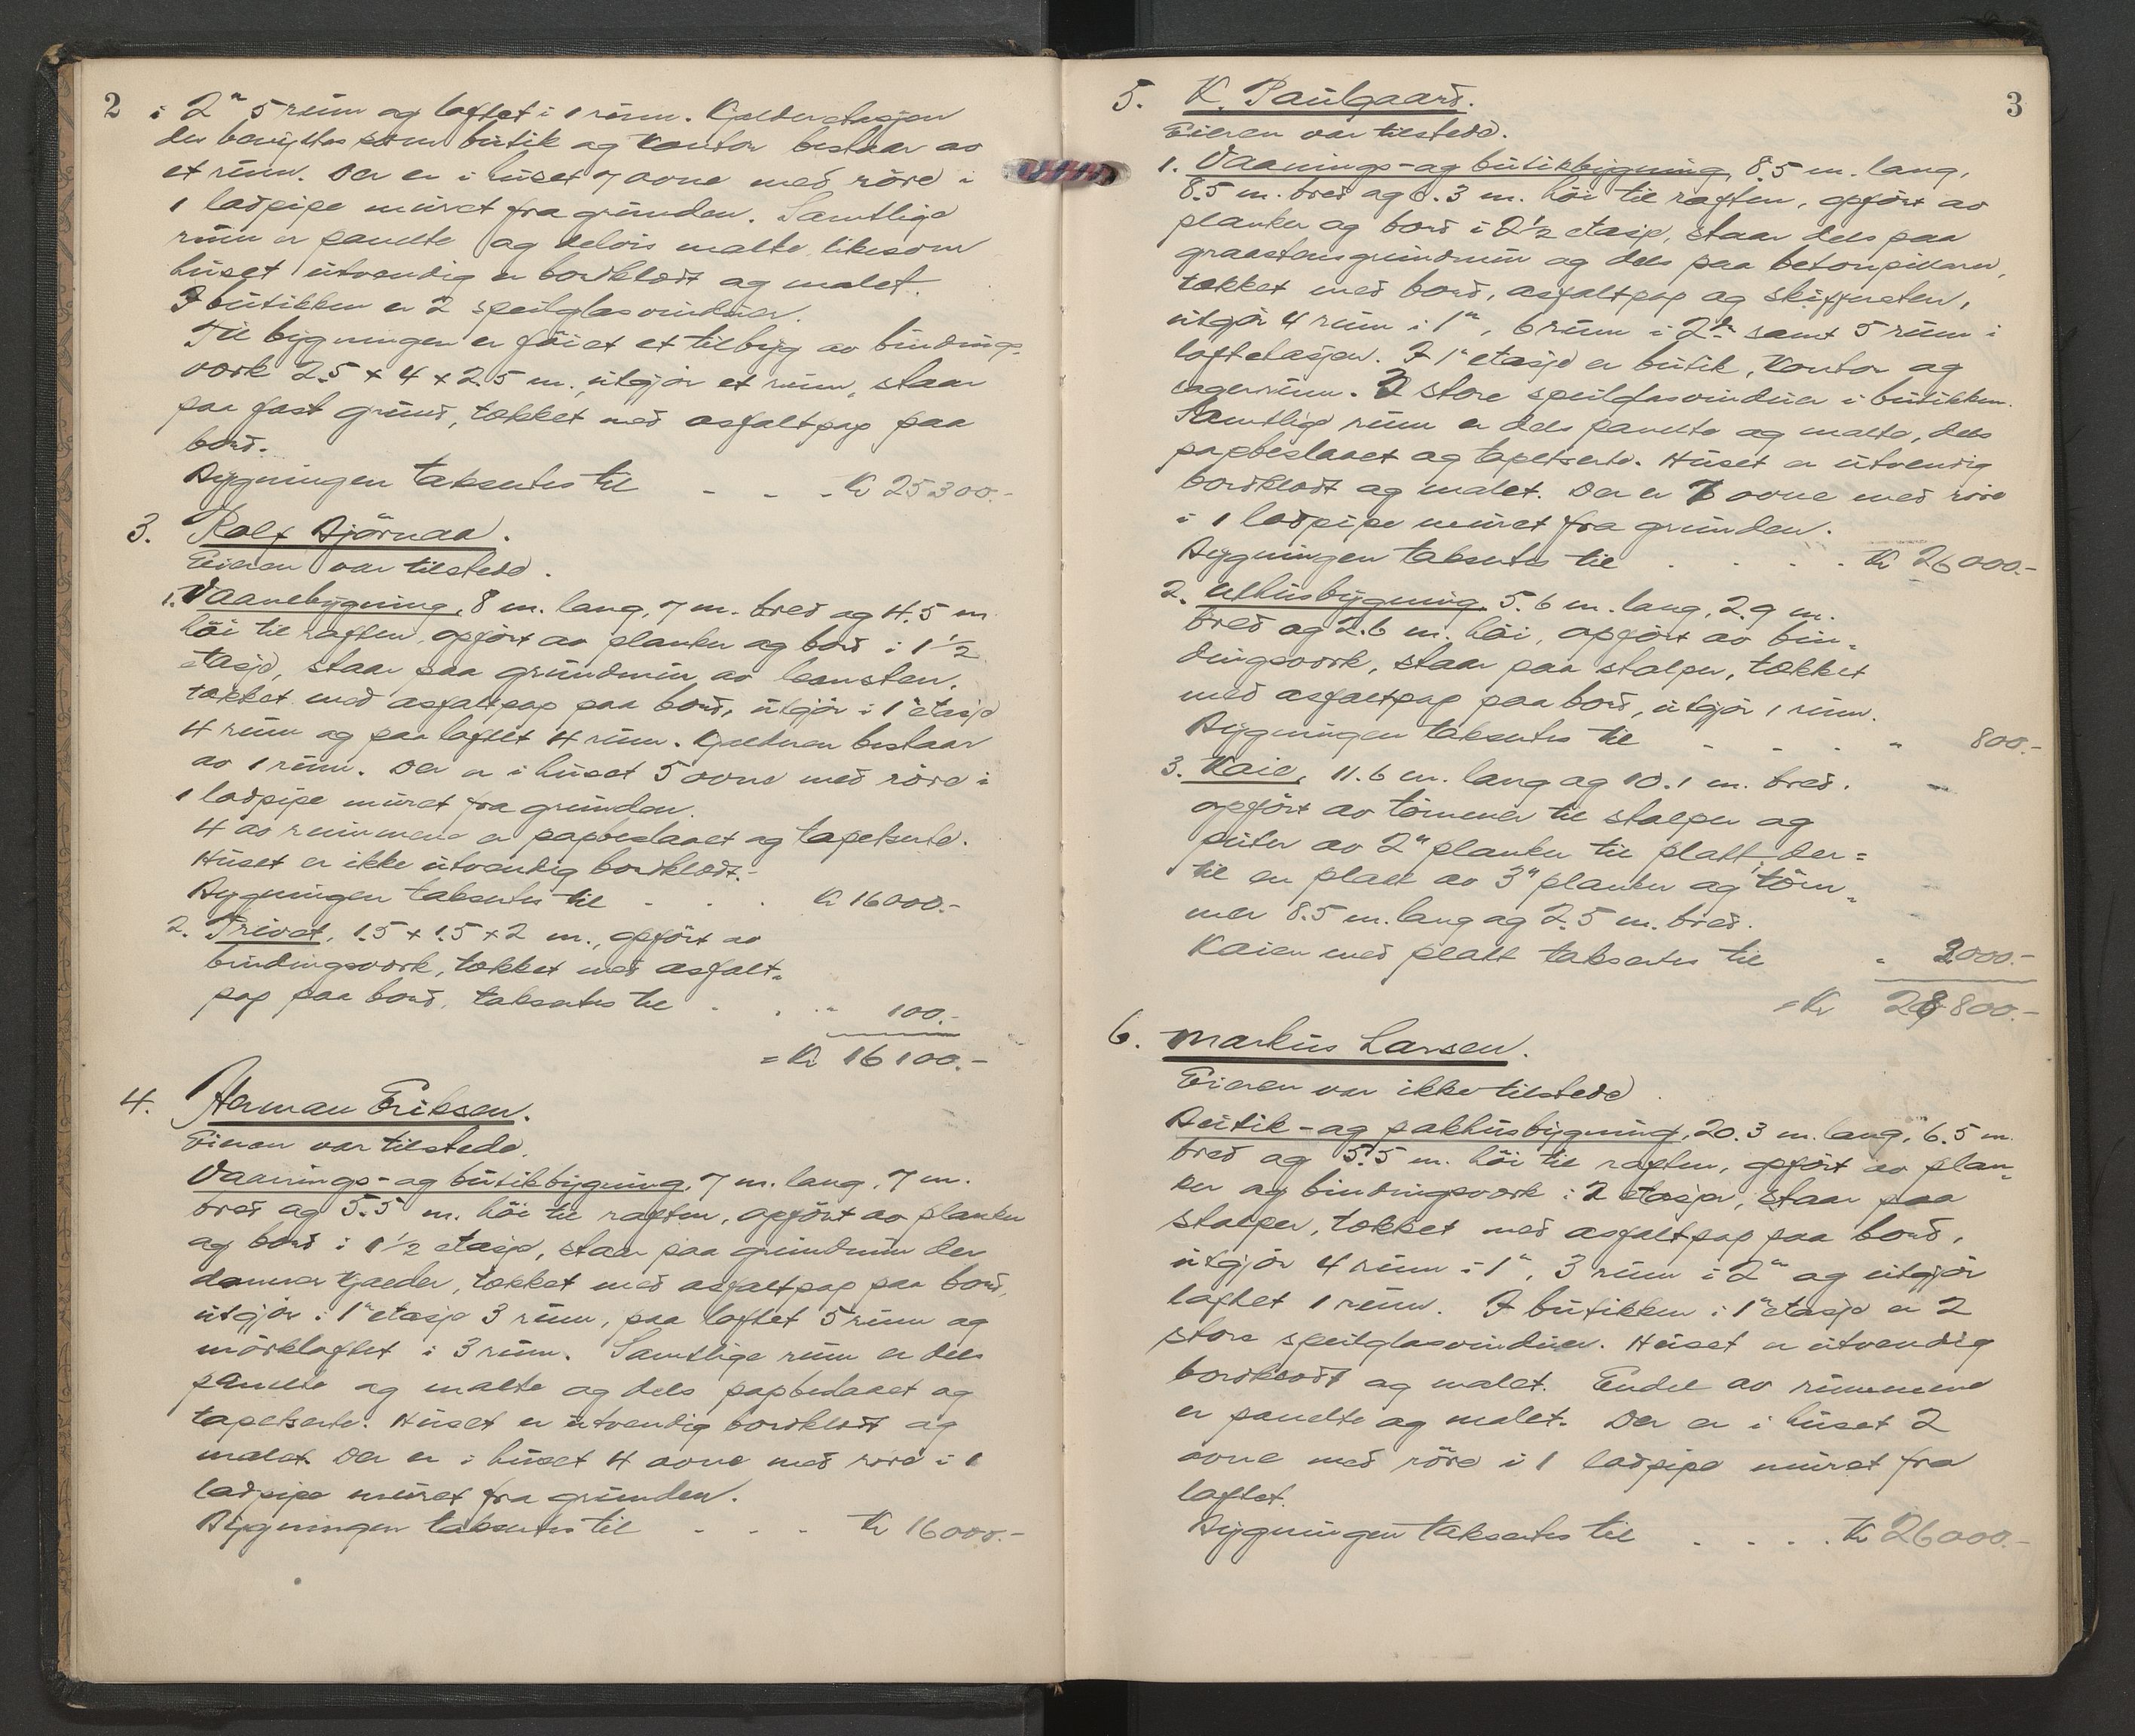 2
i 2" 5 rüm og loftet i 1 rüm. Kjelderetasjen
der benyttes som bütik og kontor bestaar av
et rüm. Der er i hüset 7 ovne med röre i
1 ladpipe müret fra gründen. Samtlige
rüm er panelte og delvis malte likesom
hüset ütvendig er bordklædt og malet.
I bütikken er 2 speilglasvindüer.
Til bygningen er föiet et tilbyg av bindings-
værk 2.5 x 4 x 2.5 m., ütgjör et rüm, staar
paa fast gründ, tækket med asfaltpap paa
bord.
Bygningen takseres til - - - Kr 25300.-
3. Rolf Björnaa.
Eieren var tilstede.
1. Vaanebygning, 8 m. lang, 7 m. bred og 4.5 m
höi til raften, opfört av planker og bord i 1 1/2
etasje, staar paa gründmür av leansten,
tækket med asfaltpap paa bord, ütgjör i 1" etasje
4 rüm og paa loftet 4 rüm. Kjelderen bestaar
av 1 rüm. Der er i hüset 5 ovne med röre i
1 ladpipe müret fra gründen.
4 av rümmene er papbeslaaet og tapetserte.
Hüset er ikke ütvendig bordklædt.-
Bygningen takseres til - . . Kr 16000.-
2. Privet, 1.5 x 1.5 x 2 m., opfört av
bindingsværk, tækket med asfalt-
pap paa bord, takseres til . . . " 100.-
= Kr 16100.-
4. Herman Eriksen.
Eieren var tilstede.
Vaanings- og bütikbygning, 7 m. lang, 7 m.
bred og 5.5 m. höi til raften, opfört av planker
og bord i 1 1/2 etasje, staar paa gründmür der
danner kjælder, tækket med asfaltpap paa bord,
ütgjör i 1" etasje 3 rüm, paa loftet 5 rüm og
mörkloftet i 3 rüm. Samtlige rüm er dels
panelte og malte og dels papbeslaaet og
tapetserte. Hüset er ütvendig bordklædt og
malet. Der er i hüset 4 ovne med röre i 1
ladpipe müret fra gründen.
Bygningen takseres til - - - Kr 16000.-
3
5. K. Paulgaard.
Eieren var tilstede.
1. Vaanings- og bütikbygning, 8.5 m. lang,
8.5 m. bred og 6.3 m. höi til raften, opfört av
planker og bord i 2 1/2 etasje, staar dels paa
graastensgründmür og dels paa betonpillarer,
tækket med bord, asfaltpap og skiffersten,
ütgjör 4 rüm i 1", 6 rüm i 2" samt 5 rüm i
loftetasjen. I 1" etasje er bütik, kontor og
lagerrüm. 2 store speilglasvindüer i bütikken.
Samtlige rüm er dels panelte og malte, dels
papbeslaaet og tapetserte. Hüset er ütvendig
bordklædt og malet. Der er 7 ovne med röre
i 1 ladpipe müret fra gründen.
Bygningen takseres til . . . . Kr 26000.-
2. Uthüsbygning, 5.6 m. lang, 2.9 m.
bred og 2.6 m. höi, opfört av bin-
dingsværk, staar paa stolper, tækket
med asfaltpap paa bord, ütgjör 1 rüm.
Bygningen takseres til - - - " 800.-
3. Kaie, 11.6 m. lang og 10.1 m. bred.
opfört av tömmer til stolper og
püter av 2" planker til platt, der=
til en platt av 3" planker og töm-
mer 8.5 m. lang og 2.5 m. bred.
Kaien med platt takseres til " 2000.-
= Kr 28800.-
6. Markus Larsen.
Eieren var ikke tilstede
Bütik- og pakhüsbygning, 20.3 m. lang, 6.5 m.
bred og 5.5 m. höi til raften, opfört av plan-
ker og bindingsværk i 2 etasjer, staar paa
stolper, tækket med asfaltpap paa bord,
ütgjör 4 rüm i 1", 3 rüm i 2" og ütgjör
loftet 1 rüm. I bütikken i 1" etasje er 2
store speilglasvindüer. Hüset er ütvendig
bordklædt og malet. Endel av rümmene
er panelte og malet. Der er i hüset 2
ovne med röre i 1 ladpipe müret fra
loftet.
Bygningen takseres til . . . . Kr 26000.-